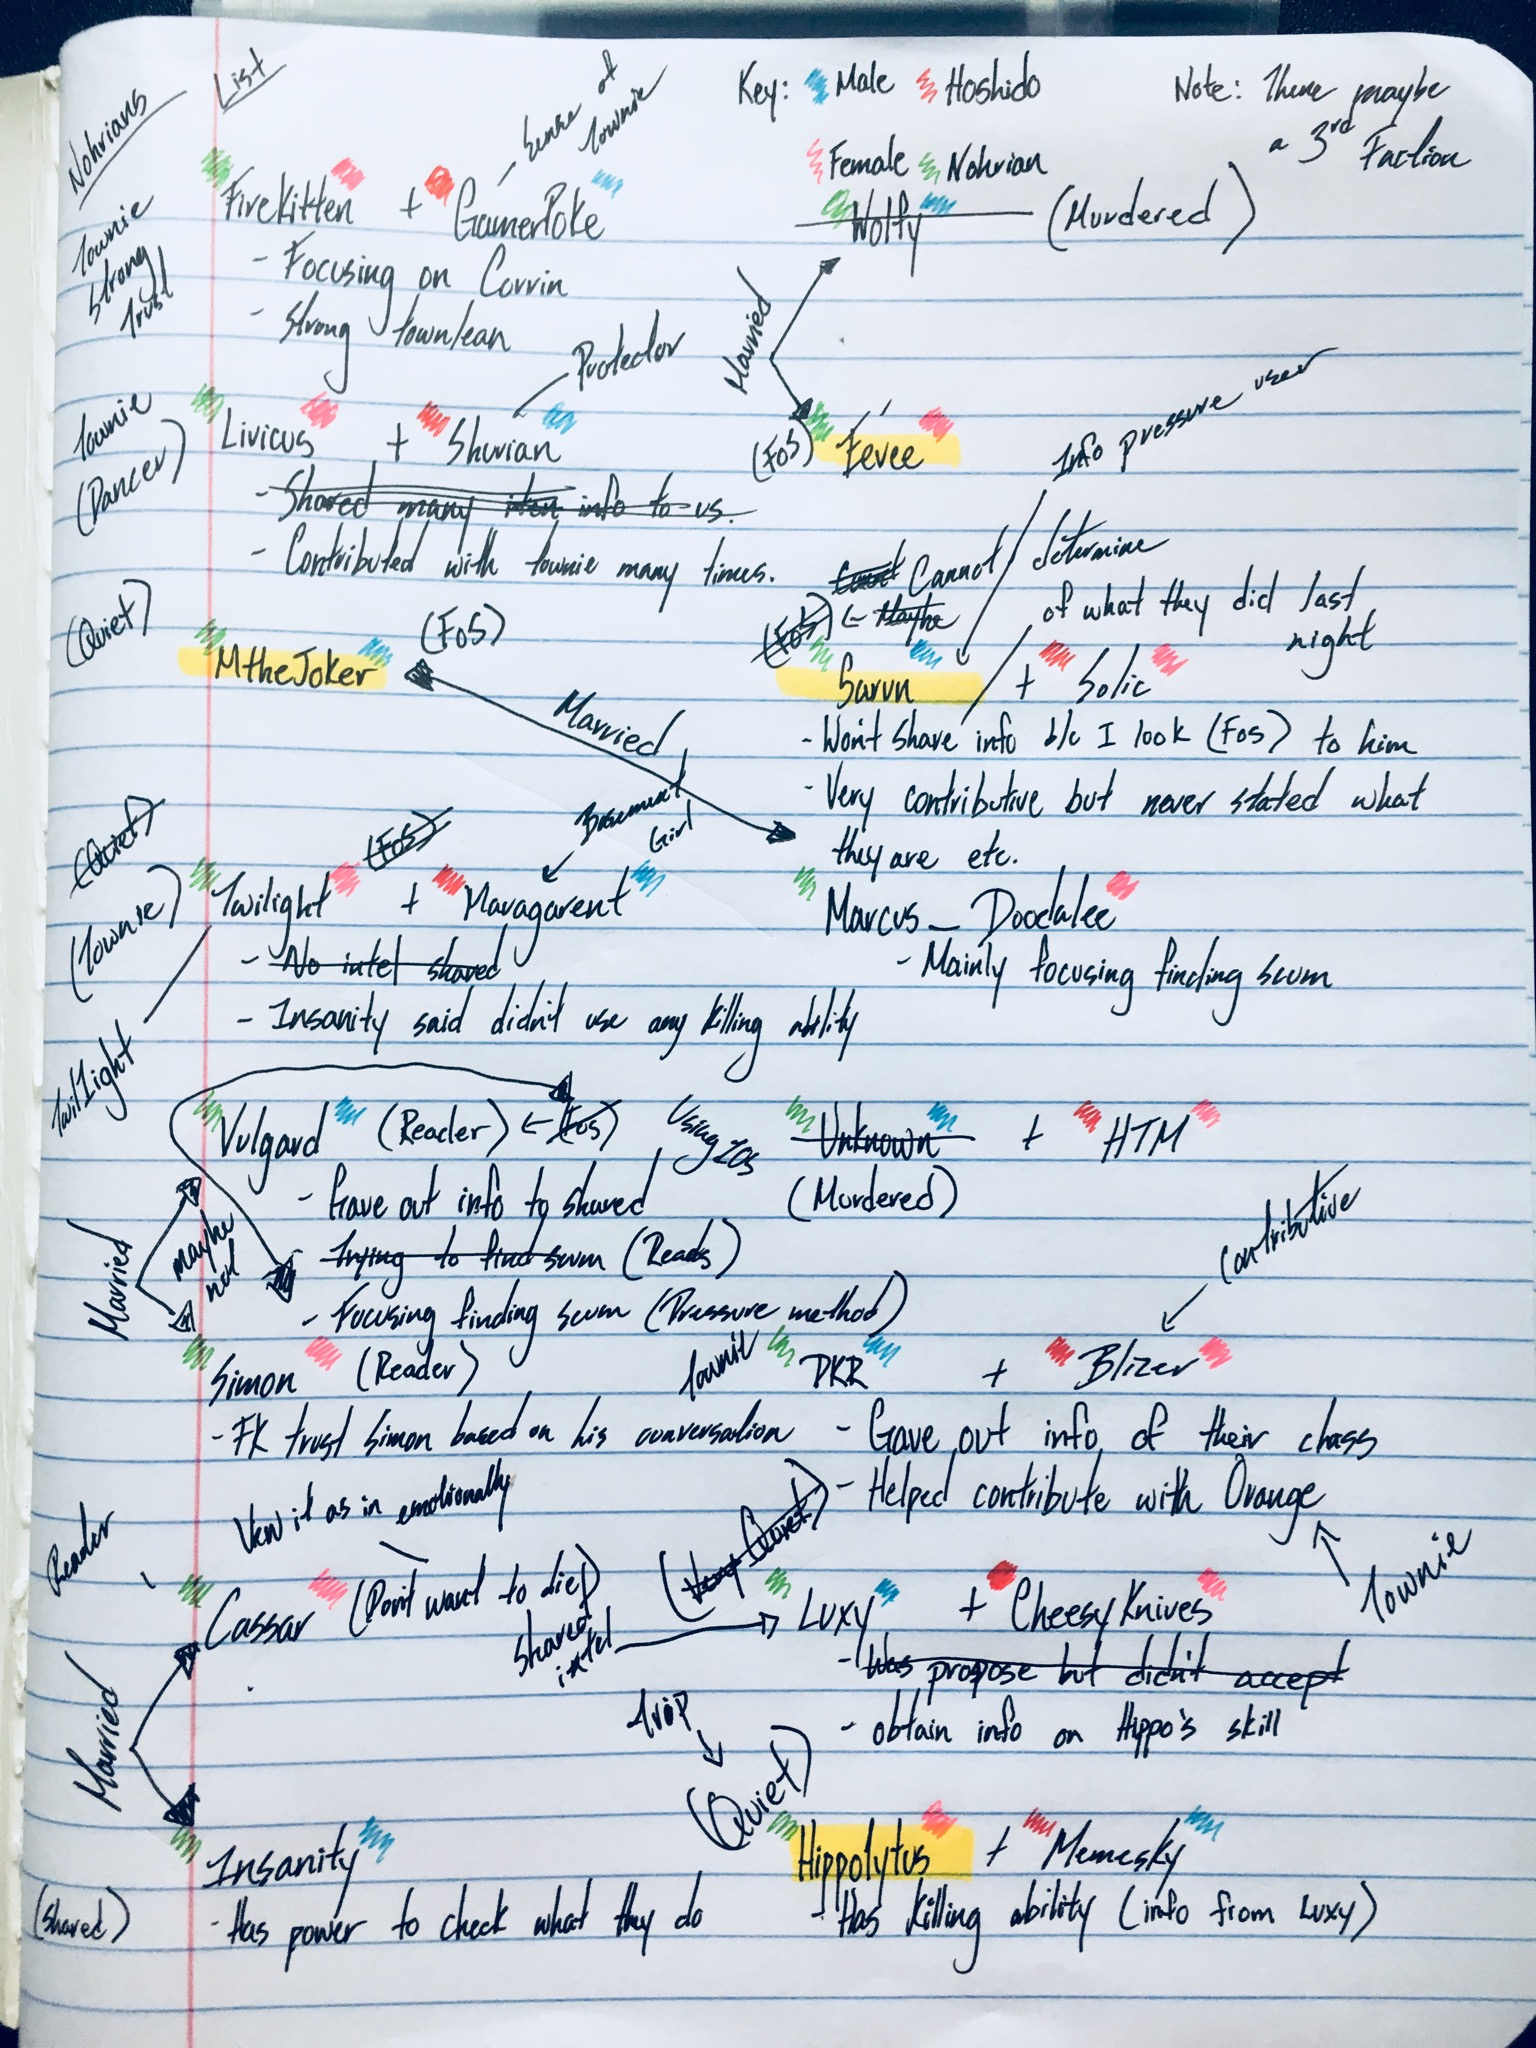 Nohrians List
Key: Male Hoshido
Female Nohrian
Note: There maybe
a 3rd Faction
Townie
Strong
Trust
Sense of
Townie
FireKitten + GamerPoke
- Focusing on Corrin
- Strong townlean
Wolfy (Murdered)
Married
(FoS) Eevee
Townie
(Dancer)
Protector
Livicus + Shurian
- Shared many info to us.
- Contributed with townie many times.
Info pressure user
Cannot determine
of what they did last
night
(FoS) ← Maybe
Sarvn + Solic
- Won't share info b/c I look (FoS) to him
- Very contributive but never stated what
they are etc.
(Quiet)
MtheJoker (FoS)
Married
Marcus_Doodalee
- Mainly focusing finding scum
(Quiet)
(Townie)
(FoS)
Basement
Girl
Twilight + Maragarent
- No intel shared
- Insanity said didn't use any killing ability
Twillight
Vulgard (Reader) ← (FoS)
- Gave out info to shared
- Trying to find scum (Reads)
- Focusing finding scum (Pressure method)
Using
Unknown + HTM
(Murdered)
Married
maybe
not
Simon (Reader)
- FK trust Simon based on his conversation
View it as in emotionally
Contributive
DKR + Blizer
- Gave out info of their class
- Helped contribute with Orange
Townie
Reader
Cassar (Don't want to die)
shared
intel
(Very Quiet)
Luxy + CheesyKnives
- Was propose but didn't accept
- obtain info on Hippo's skill
Married
Insanity
(shared)
- Has power to check what they do
(Quiet)
Hippolytus + Memesky
- Has killing ability (info from Luxy)